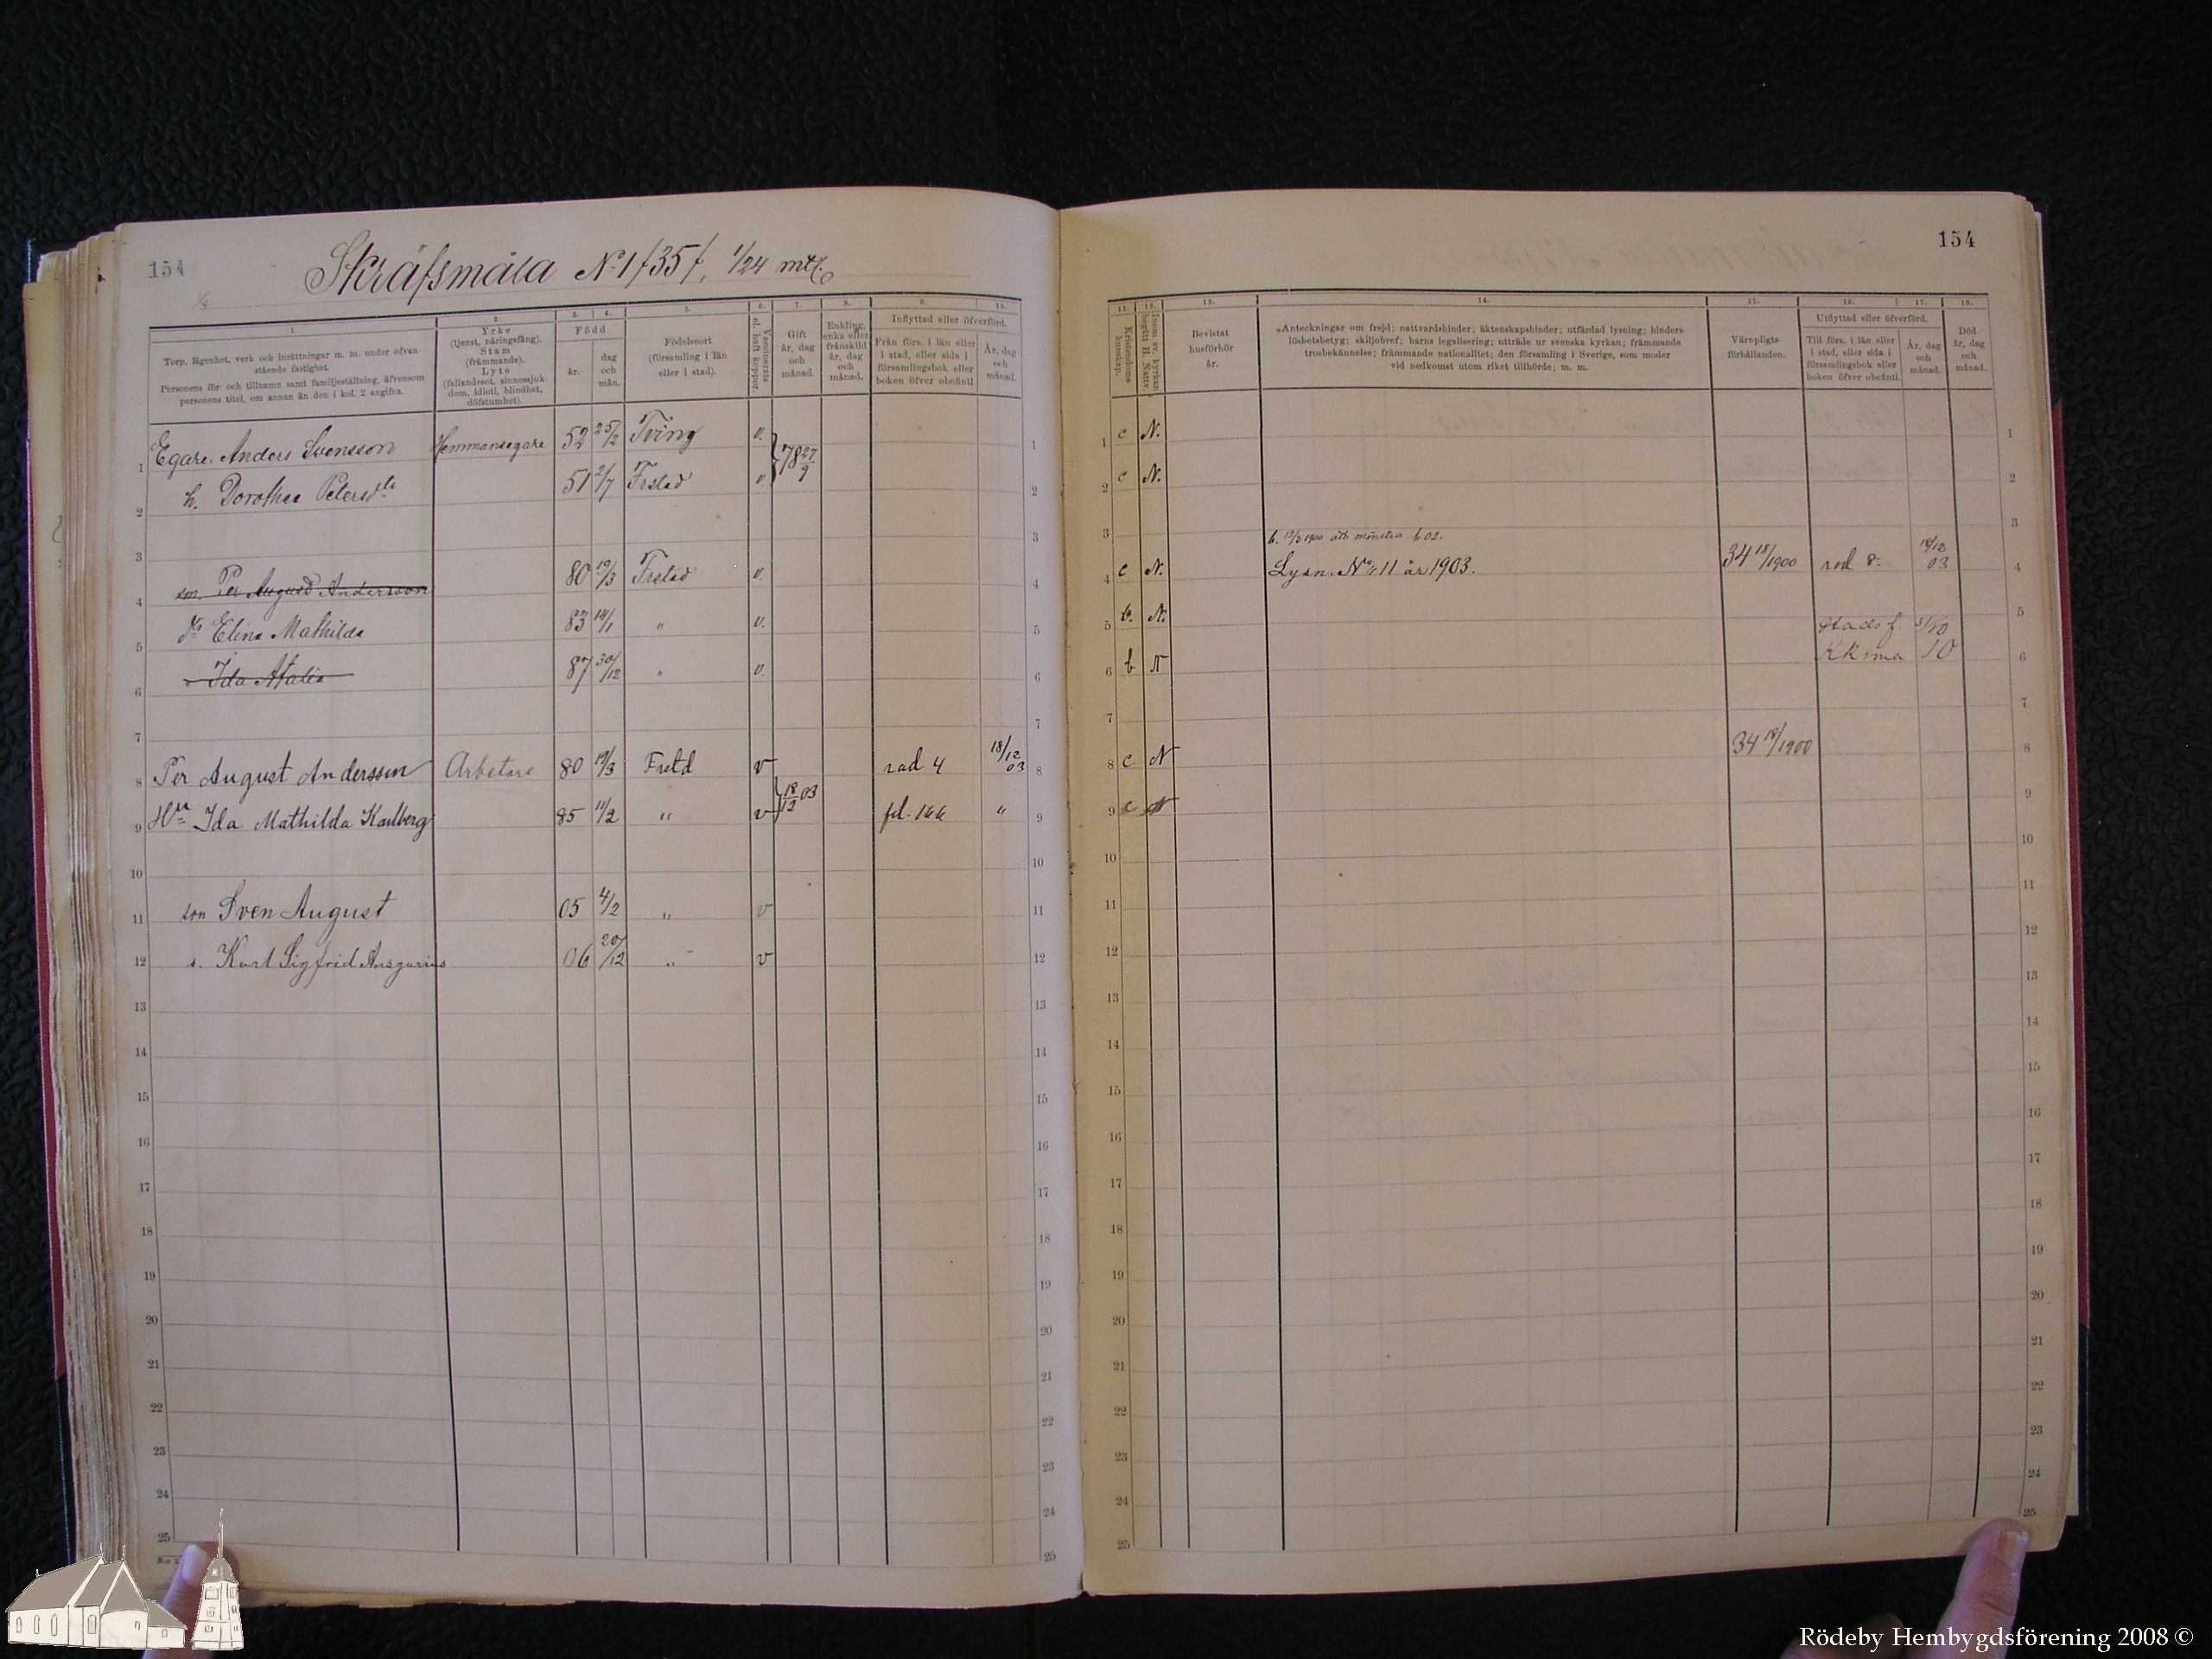 154
Skräfsmåla No 1 /35/, 1/24 mtl.
1. 2. 3. 4. 5. 6. 7. 8. 9. 10.
Torp, lägenhet, verk och inrättningar m. m. under ofvan stående fastighet.
Personens för- och tillnamn samt familjeställning, äfvensom personens titel, om annan än den i kol. 2 angifva.
Yrke (tjenst, näringsfång). Stam (främmande). Lyte (fallandesot, sinnessjukdom, idioti, blindhet, döfstumhet).
Född
år. dag och mån.
Födelseort (församling i län eller i stad).
Vaccinerats el. haft koppor.
Gift år, dag och månad.
Enkling, enka eller frånskild år, dag och månad.
Inflyttad eller öfverförd.
Från förs. i län eller i stad, eller sida i församlingsbok eller boken öfver obefintl.
År, dag och månad.
1 Egare. Anders Svensson Hemmansegare 52 25/2 Tving v. } 78 27/9 1
2 h. Dorothea Petersdtr 51 2/7 Frstad v. 2
3 3
4 son. Per August Andersson 80 19/3 Frstad v. 4
5 dr Elina Mathilda 83 14/1 " v. 5
6 " Ida Atalia 87 30/12 " v. 6
7 7
8 Per August Andersson Arbetare 80 19/3 Frstd v } 18/12 03 rad 4 18/12 03 8
9 Hu Ida Mathilda Karlberg 85 11/2 " v fd. 166 " 9
10 10
11 son Sven August 05 4/2 " v 11
12 s. Kurt Sigfrid Ansgarius 06 20/12 " v 12
13 13
14 14
15 15
16 16
17 17
18 18
19 19
20 20
21 21
22 22
23 23
24 24
25 25
154
11. 12. 13. 14. 15. 16. 17. 18.
Kristendomskunskap.
Inom sv. kyrkan begått H. Nattv.
Bevistat husförhör år.
Anteckningar om frejd; nattvardshinder; äktenskapshinder; utfärdad lysning; hinderslöshetsbetyg; skiljobref; barns legalisering; utträde ur svenska kyrkan; främmande trosbekännelse; främmande nationalitet; den församling i Sverige, som moder vid nedkomst utom riket tillhörde; m. m.
Värnpligtsförhållanden.
Utflyttad eller öfverförd.
Till förs. i län eller i stad, eller sida i församlingsbok eller boken öfver obefintl.
År, dag och månad.
Död år, dag och månad.
1 c N. 1
2 c N. 2
3 3
b. 12/3 1900 att mönstra b. 02.
4 c N. Lysn. No 11 år 1903. 34 18/1900 rad 8. 18/12 03 4
5 N. 5
Stads f.
6 b N Kkrona 10 6
7 7
8 c N 34 18/1900 8
9 c N 9
10 10
11 11
12 12
13 13
14 14
15 15
16 16
17 17
18 18
19 19
20 20
21 21
22 22
23 23
24 24
25 25
Rödeby Hembygdsförening 2008 ©